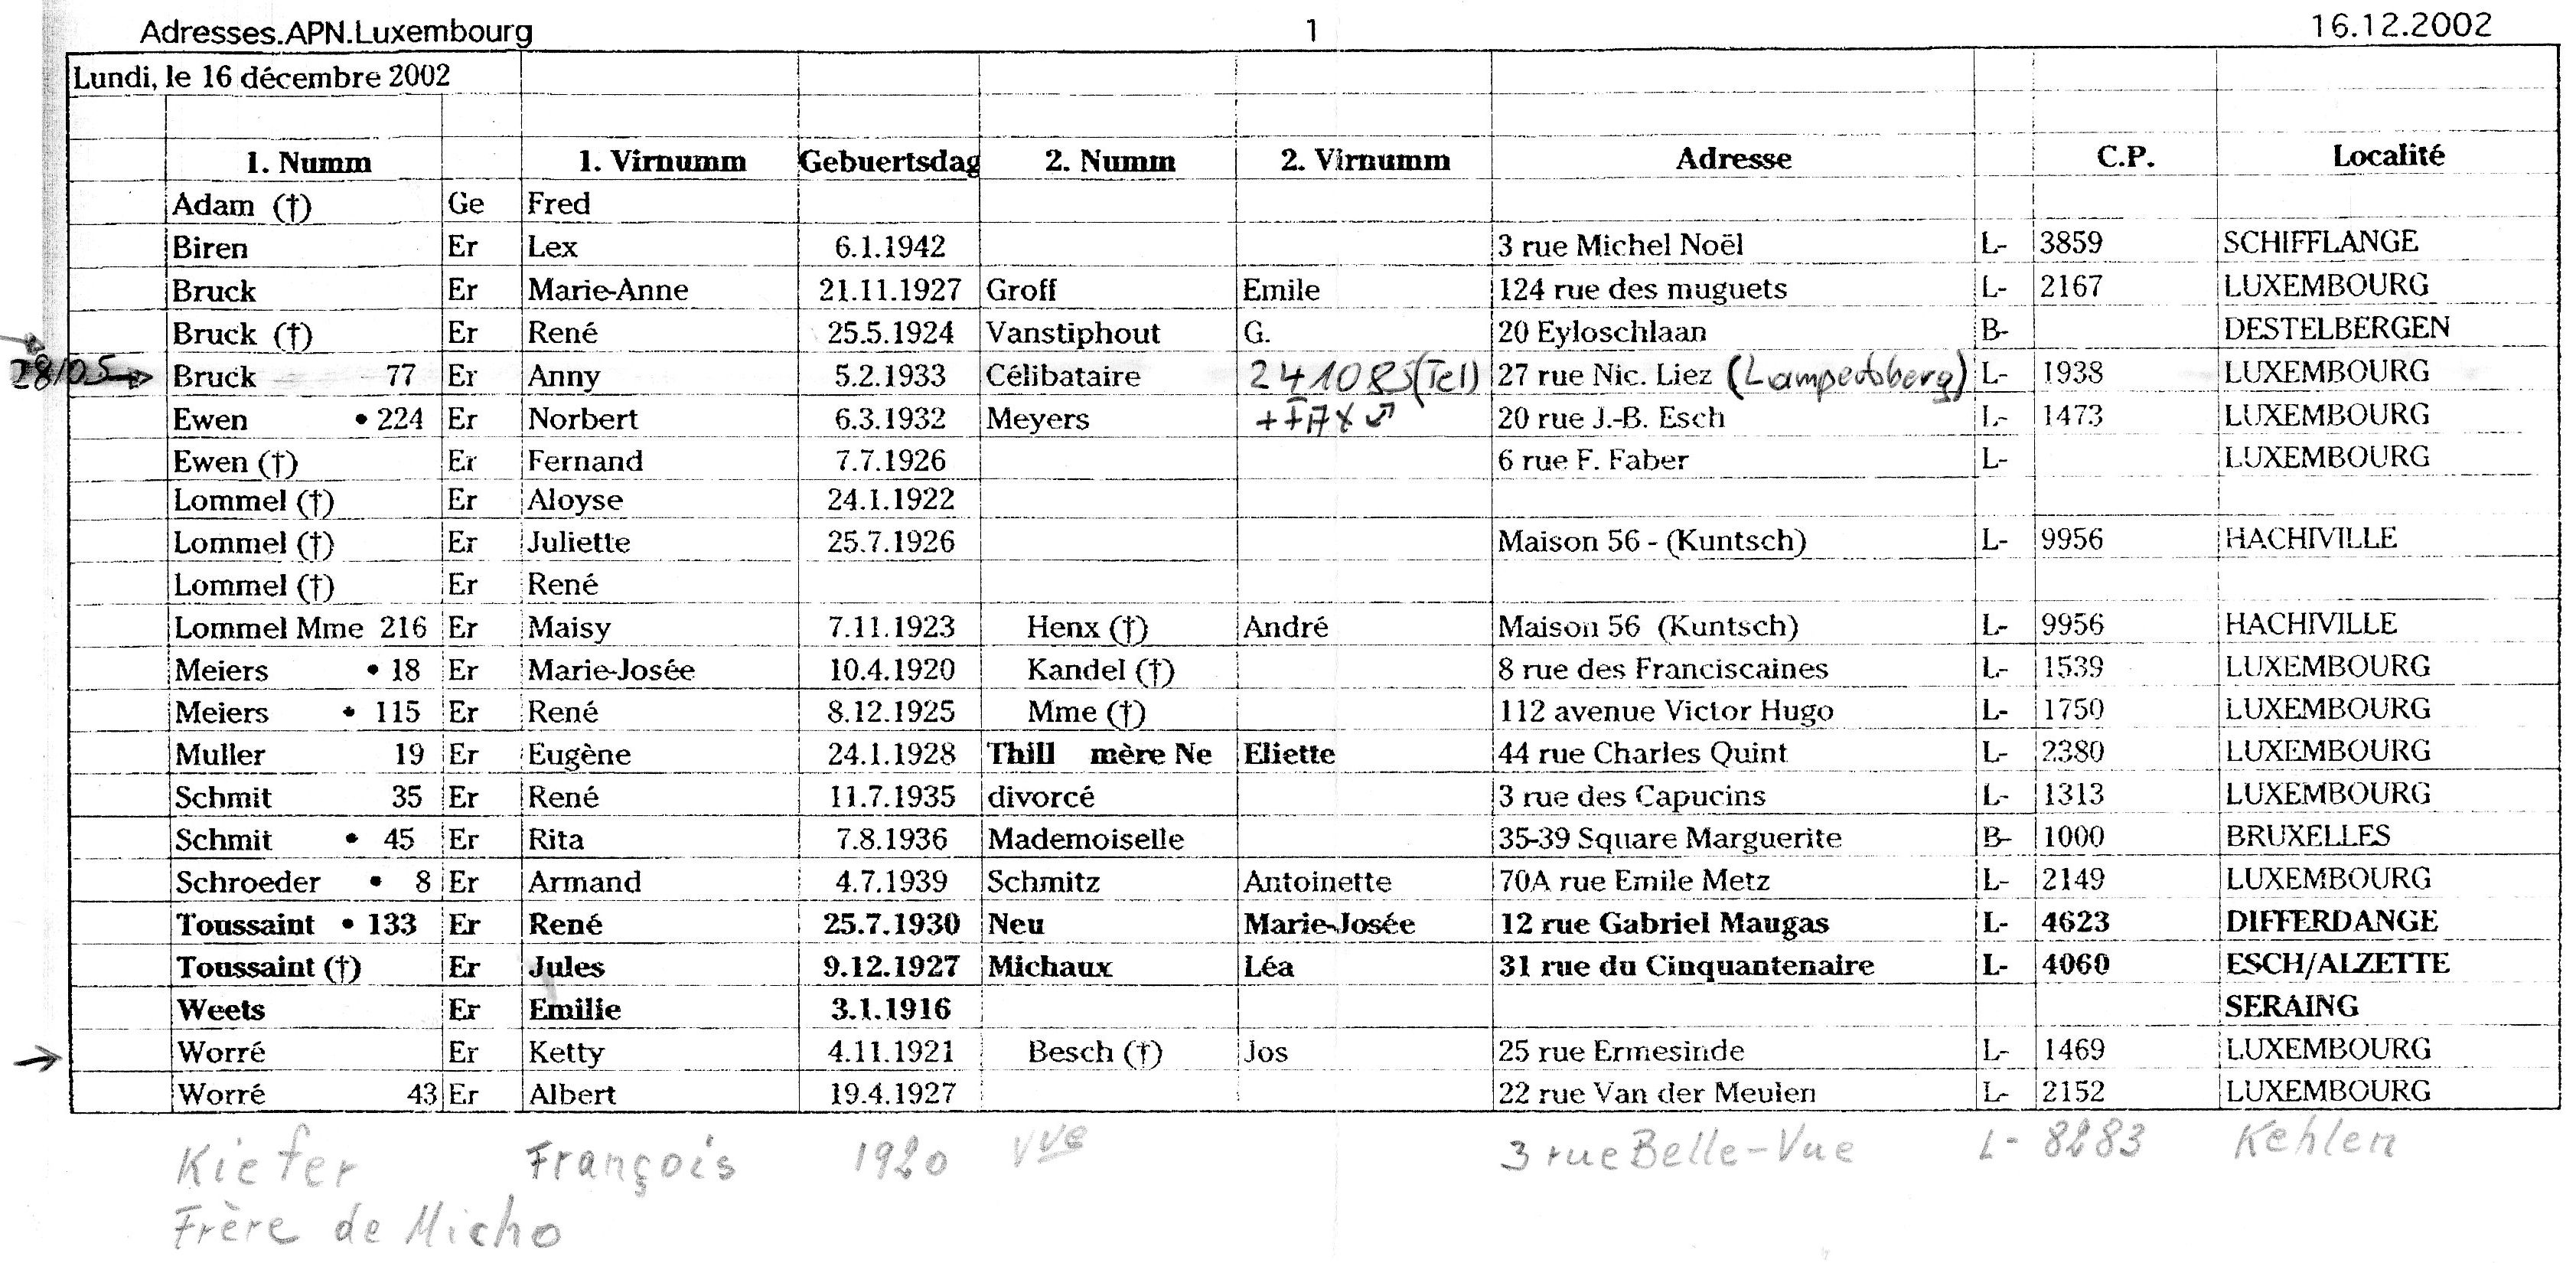 Adresses.APN.Luxembourg 1 16.12.2002
Lundi, le 16 décembre 2002
1. Numm 1. Virnumm Gebuertsdag 2. Numm 2. Virnumm Adresse C.P. Localité
Adam (†) Ge Fred
Biren Er Lex 6.1.1942 3 rue Michel Noël L- 3859 SCHIFFLANGE
Bruck Er Marie-Anne 21.11.1927 Groff Emile 124 rue des muguets L- 2167 LUXEMBOURG
Bruck (†) Er René 25.5.1924 Vanstiphout G. 20 Eyloschlaan B- DESTELBERGEN
28/05 → Bruck 77 Er Anny 5.2.1933 Célibataire 241085 (Tel) 27 rue Nic. Liez (Lampertsberg) L- 1938 LUXEMBOURG
Ewen • 224 Er Norbert 6.3.1932 Meyers 20 rue J.-B. Esch L- 1473 LUXEMBOURG
Ewen (†) Er Fernand 7.7.1926 6 rue F. Faber L- LUXEMBOURG
Lommel (†) Er Aloyse 24.1.1922
Lommel (†) Er Juliette 25.7.1926 Maison 56 - (Kuntsch) L- 9956 HACHIVILLE
Lommel (†) Er René
Lommel Mme 216 Er Maisy 7.11.1923 Henx (†) André Maison 56 (Kuntsch) L- 9956 HACHIVILLE
Meiers • 18 Er Marie-Josée 10.4.1920 Kandel (†) 8 rue des Franciscaines L- 1539 LUXEMBOURG
Meiers • 115 Er René 8.12.1925 Mme (†) 112 avenue Victor Hugo L- 1750 LUXEMBOURG
Muller 19 Er Eugène 24.1.1928 Thill mère Ne Eliette 44 rue Charles Quint L- 2380 LUXEMBOURG
Schmit 35 Er René 11.7.1935 divorcé 3 rue des Capucins L- 1313 LUXEMBOURG
Schmit • 45 Er Rita 7.8.1936 Mademoiselle 35-39 Square Marguerite B- 1000 BRUXELLES
Schroeder • 8 Er Armand 4.7.1939 Schmitz Antoinette 70A rue Emile Metz L- 2149 LUXEMBOURG
Toussaint • 133 Er René 25.7.1930 Neu Marie-Josée 12 rue Gabriel Maugas L- 4623 DIFFERDANGE
Toussaint (†) Er Jules 9.12.1927 Michaux Léa 31 rue du Cinquantenaire L- 4060 ESCH/ALZETTE
Weets Er Emilie 3.1.1916 SERAING
→ Worré Er Ketty 4.11.1921 Besch (†) Jos 25 rue Ermesinde L- 1469 LUXEMBOURG
Worré 43 Er Albert 19.4.1927 22 rue Van der Meulen L- 2152 LUXEMBOURG
Kiefer François 1920 Vve 3 rue Belle-Vue L- 8283 Kehlen
Frère de Micho